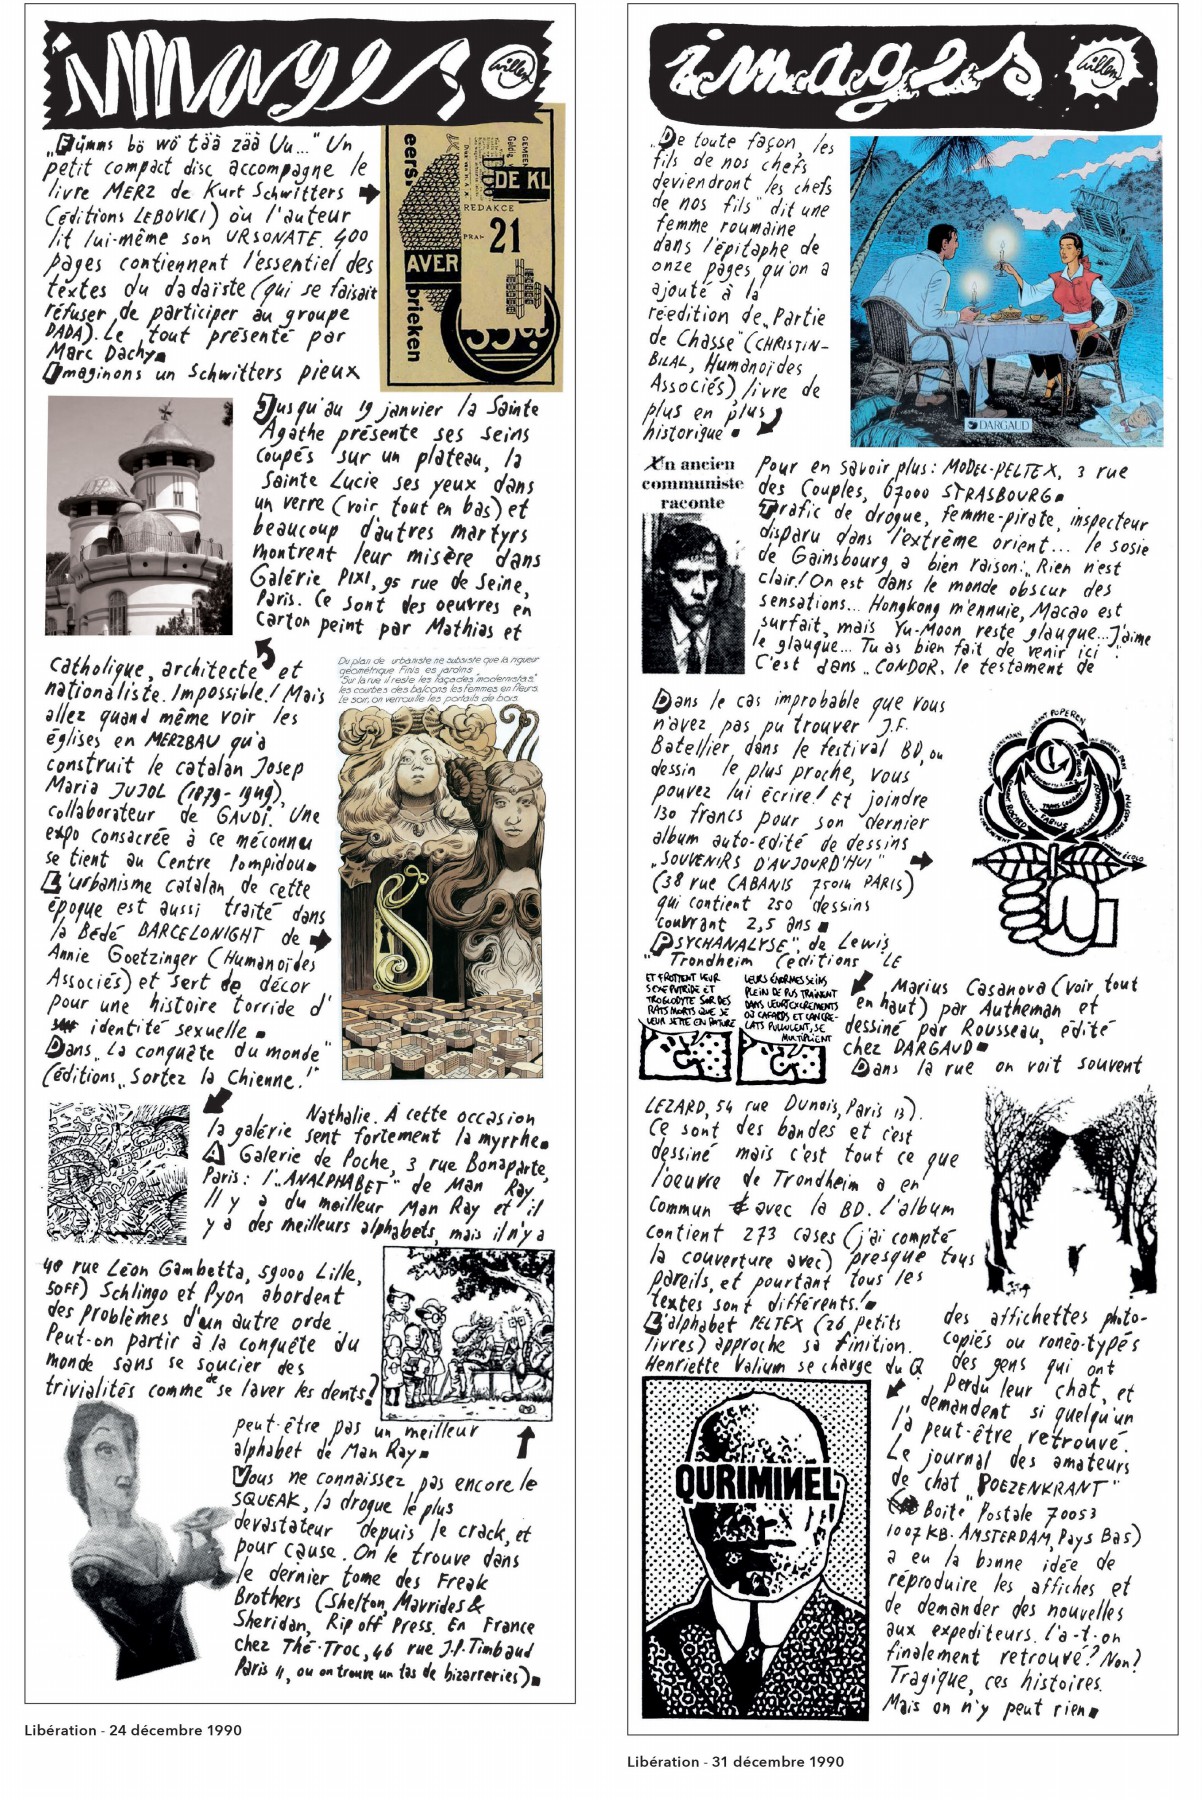 images
Willem
„Fümms bö wö tää zää Uu..." Un
petit compact disc accompagne le
livre MERZ de Kurt Schwitters
(éditions LEBOVICI) où l'auteur
lit lui-même son URSONATE. 400
pages contiennent l'essentiel des
textes du dadaïste (qui se faisait
réfuser de participer au groupe
DADA). Le tout présenté par
Marc Dachy
Imaginons un Schwitters pieux
eers.
DE KL
REDAKCE
PRA-
21
AVER
brieken
catholique, architecte et
nationaliste. Impossible! Mais
allez quand même voir les
églises en MERZBAU qu'a
construit le catalan Josep
Maria JUJOL (1879-1949),
collaborateur de GAUDÍ. Une
expo consacrée à ce méconnu
se tient au Centre Pompidou
L'urbanisme catalan de cette
époque est aussi traité dans
la Bédé BARCELONIGHT de
Annie Goetzinger (Humanoïdes
Associés) et sert de décor
pour une histoire torride d'
identité sexuelle
Du plan de urbaniste ne subsiste que la rigueur
géométrique. Finis es jardins
"Sur la rue il reste les façades modernistas"
les courbes des balcons les femmes en fleurs.
Le soir, on verrouille les portails de bois
Dans „La conquête du monde"
(éditions „Sortez la Chienne!"
40 rue Léon Gambetta, 59000 Lille,
50FF) Schlingo et Pyon abordent
des problèmes d'un autre orde
Peut-on partir à la conquête du
monde sans se soucier des
trivialités comme de se laver les dents?
Jusqu'au 19 janvier la Sainte
Agathe présente ses seins
coupés sur un plateau, la
Sainte Lucie ses yeux dans
un verre (voir tout en bas) et
beaucoup d'autres martyrs
montrent leur misère dans
Galérie PIXI, 95 rue de Seine,
Paris. Ce sont des oeuvres en
Carton peint par Mathias et
Nathalie. A cette occasion
la galérie sent fortement la myrrhe
A Galerie de Poche, 3 rue Bonaparte,
Paris: l'„ANALPHABET" de Man Ray.
Il y a du meilleur Man Ray et il
y a des meilleurs alphabets, mais il n'y a
peut-être pas un meilleur
alphabet de Man Ray
Vous ne connaissez pas encore le
SQUEAK, la drogue le plus
devastateur depuis le crack, et
pour cause. On le trouve dans
le dernier tome des Freak
Brothers (Shelton, Mavrides &
Sheridan, Rip off Press. En France
chez Thé-Troc, 46 rue J.P. Timbaud
Paris 11, ou on trouve un tas de bizarreries)
Libération - 24 décembre 1990
images
Willem
„De toute façon, les
fils de nos chefs
deviendront les chefs
de nos fils" dit une
femme roumaine
dans l'épitaphe de
onze pages qu'on a
ajouté à la
réédition de „Partie
de Chasse" (CHRISTIN-
BILAL, Humanoïdes
Associés), livre de
plus en plus
historique
DARGAUD
Un ancien
communiste
raconte
Dans le cas improbable que vous
n'avez pas pu trouver J.F.
Batellier dans le festival BD, ou
dessin le plus proche, vous
pouvez lui écrire! Et joindre
130 francs pour son dernier
album auto-édité de dessins
„SOUVENIRS D'AUJOURD'HUI"
(38 rue CABANIS 75014 PARIS)
qui contient 250 dessins
couvrant 2,5 ans
„PSYCHANALYSE", de Lewis
Trondheim (éditions LE
LEZARD, 54 rue Dunois, Paris 13).
Ce sont des bandes et c'est
dessiné mais c'est tout ce que
l'oeuvre de Trondheim a en
commun avec la BD. L'album
contient 273 cases (j'ai compté
la couverture avec) presque tous
pareils, et pourtant tous les
textes sont différents!
ET FROTTENT LEUR
SEXE PUTRIDE ET
TROGLODYTE SUR DES
RATS MORTS QUE JE
LEUR JETTE EN PATURE
LEURS ÉNORMES SEINS
PLEIN DE PUS TRAINENT
DANS LEURS EXCREMENTS
OÙ CAFARDS ET CANCRE-
LATS PULLULENT, SE
MULTIPLIENT
L'alphabet PELTEX (26 petits
livres) approche sa finition.
Henriette Valium se charge du Q
QURIMINEL
Pour en savoir plus: MODEL-PELTEX, 3 rue
des Couples, 67000 STRASBOURG
Trafic de drogue, femme-pirate, inspecteur
disparu dans l'extrême orient... le sosie
de Gainsbourg a bien raison: „Rien n'est
clair! On est dans le monde obscur des
sensations... Hongkong m'ennuie, Macao est
surfait, mais Yu-Moon reste glauque... J'aime
le glauque... Tu as bien fait de venir ici"
C'est dans „CONDOR, le testament de
Marius Casanova (voir tout
en haut) par Autheman et
dessiné par Rousseau, édité
chez DARGAUD
Dans la rue on voit souvent
des affichettes photo-
copiés ou ronéo-typés
des gens qui ont
perdu leur chat, et
demandent si quelqu'un
l'a peut-être retrouvé.
Le journal des amateurs
de chat „POEZENKRANT"
(Boite Postale 70053
1007 KB. AMSTERDAM, Pays Bas)
a eu la bonne idée de
réproduire les affiches et
de demander des nouvelles
aux expediteurs. L'a-t-on
finalement retrouvé? Non?
Tragique, ces histoires.
Mais on n'y peut rien
Libération - 31 décembre 1990